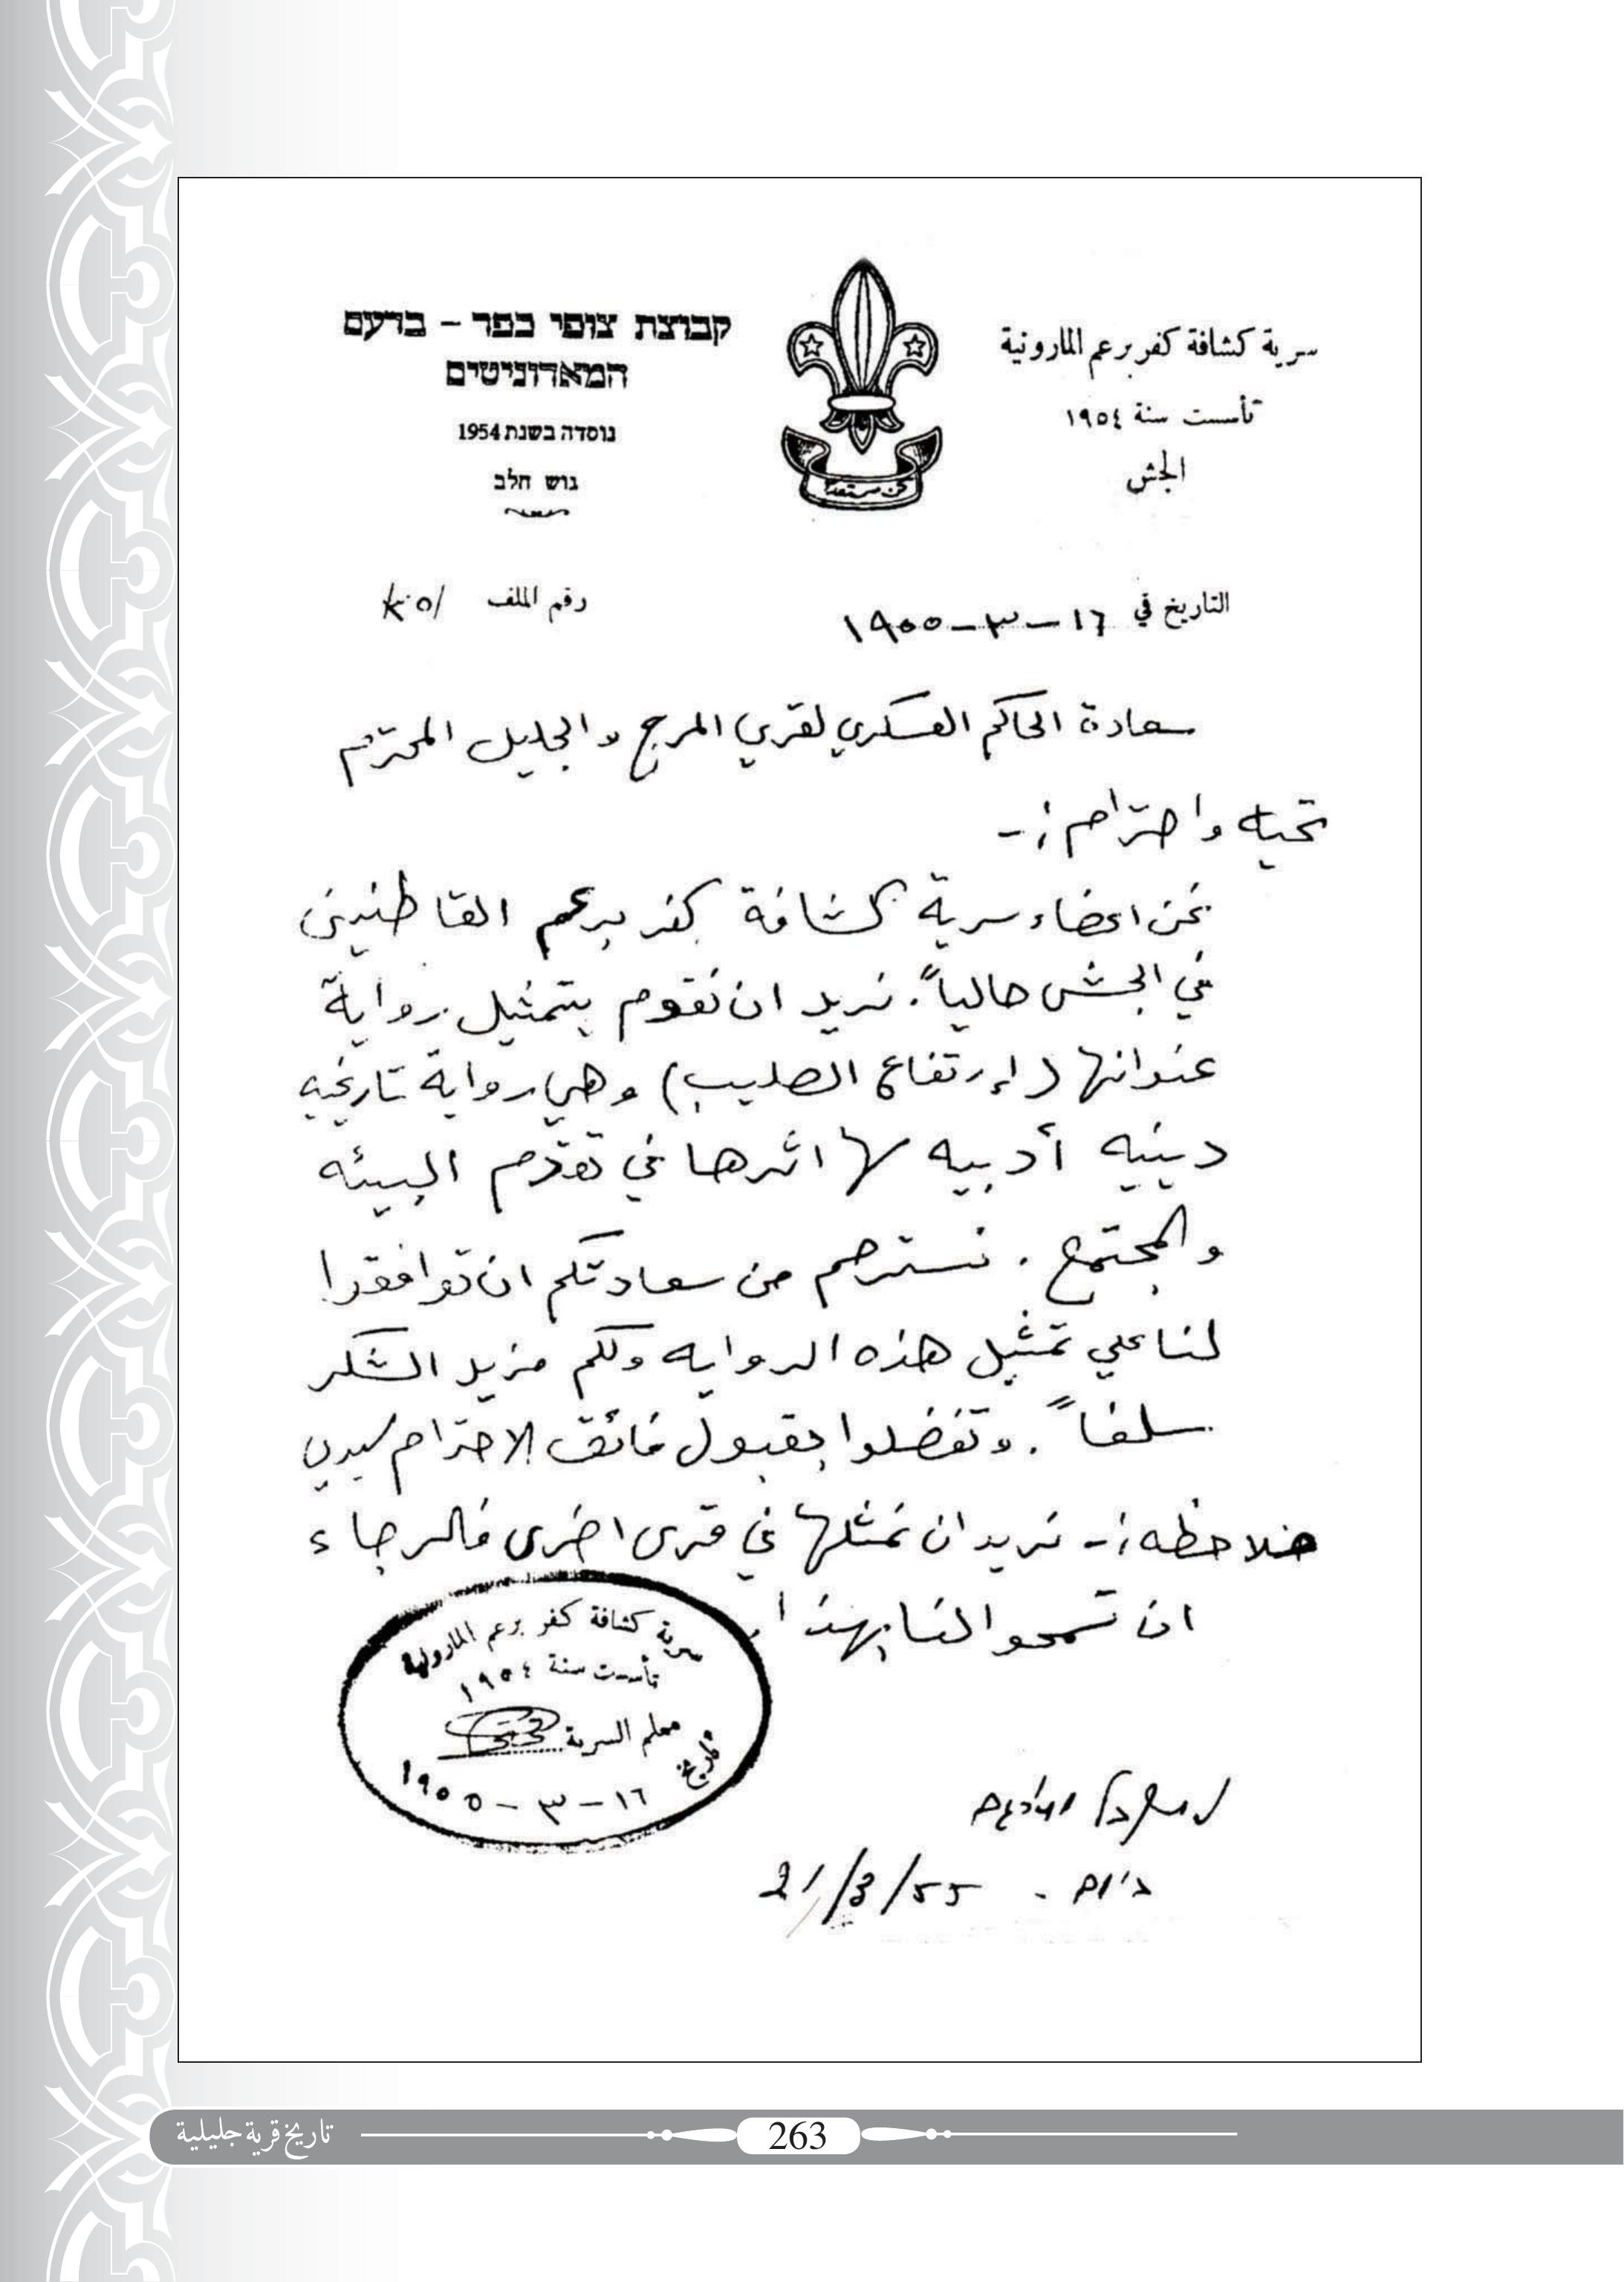 سرية كشافة كفر برعم المارونية
تأسست سنة ١٩٥٤
الجش
קבוצת צופי כפר - ברעם
המארוניטים
נוסדה בשנת 1954
גוש חלב
التاريخ في ١٦-٣-١٩٥٥
رقم الملف
سعادة الحاكم العسكري لقرى المرج والجليل المحترم
تحيه واحترام :-
نحن اعضاء سرية كشافة كفر برعم القاطنين
في الجش حالياً. نريد ان نقوم بتمثيل رواية
عنوانها (إرتفاع الصليب) وهي رواية تاريخيه
دينيه أدبيه لها اثرها في تقدّم البيئه
والمجتمع. نسترحم من سعادتكم ان توافقوا
لنا على تمثيل هذه الروايه ولكم مزيد الشكر
سلفاً. وتفضلوا بقبول فائق الاحترام سيدي
ملاحظه :- نريد ان نمثلها في قرى اخرى فالرجاء
ان تسمحوا لنا بهذا.
سرية كشافة كفر برعم المارونية
تأسست سنة ١٩٥٤
معلم السرية
تاريخ ١٦-٣-١٩٥٥
21/3/55
263
تاريخ قرية جليلية